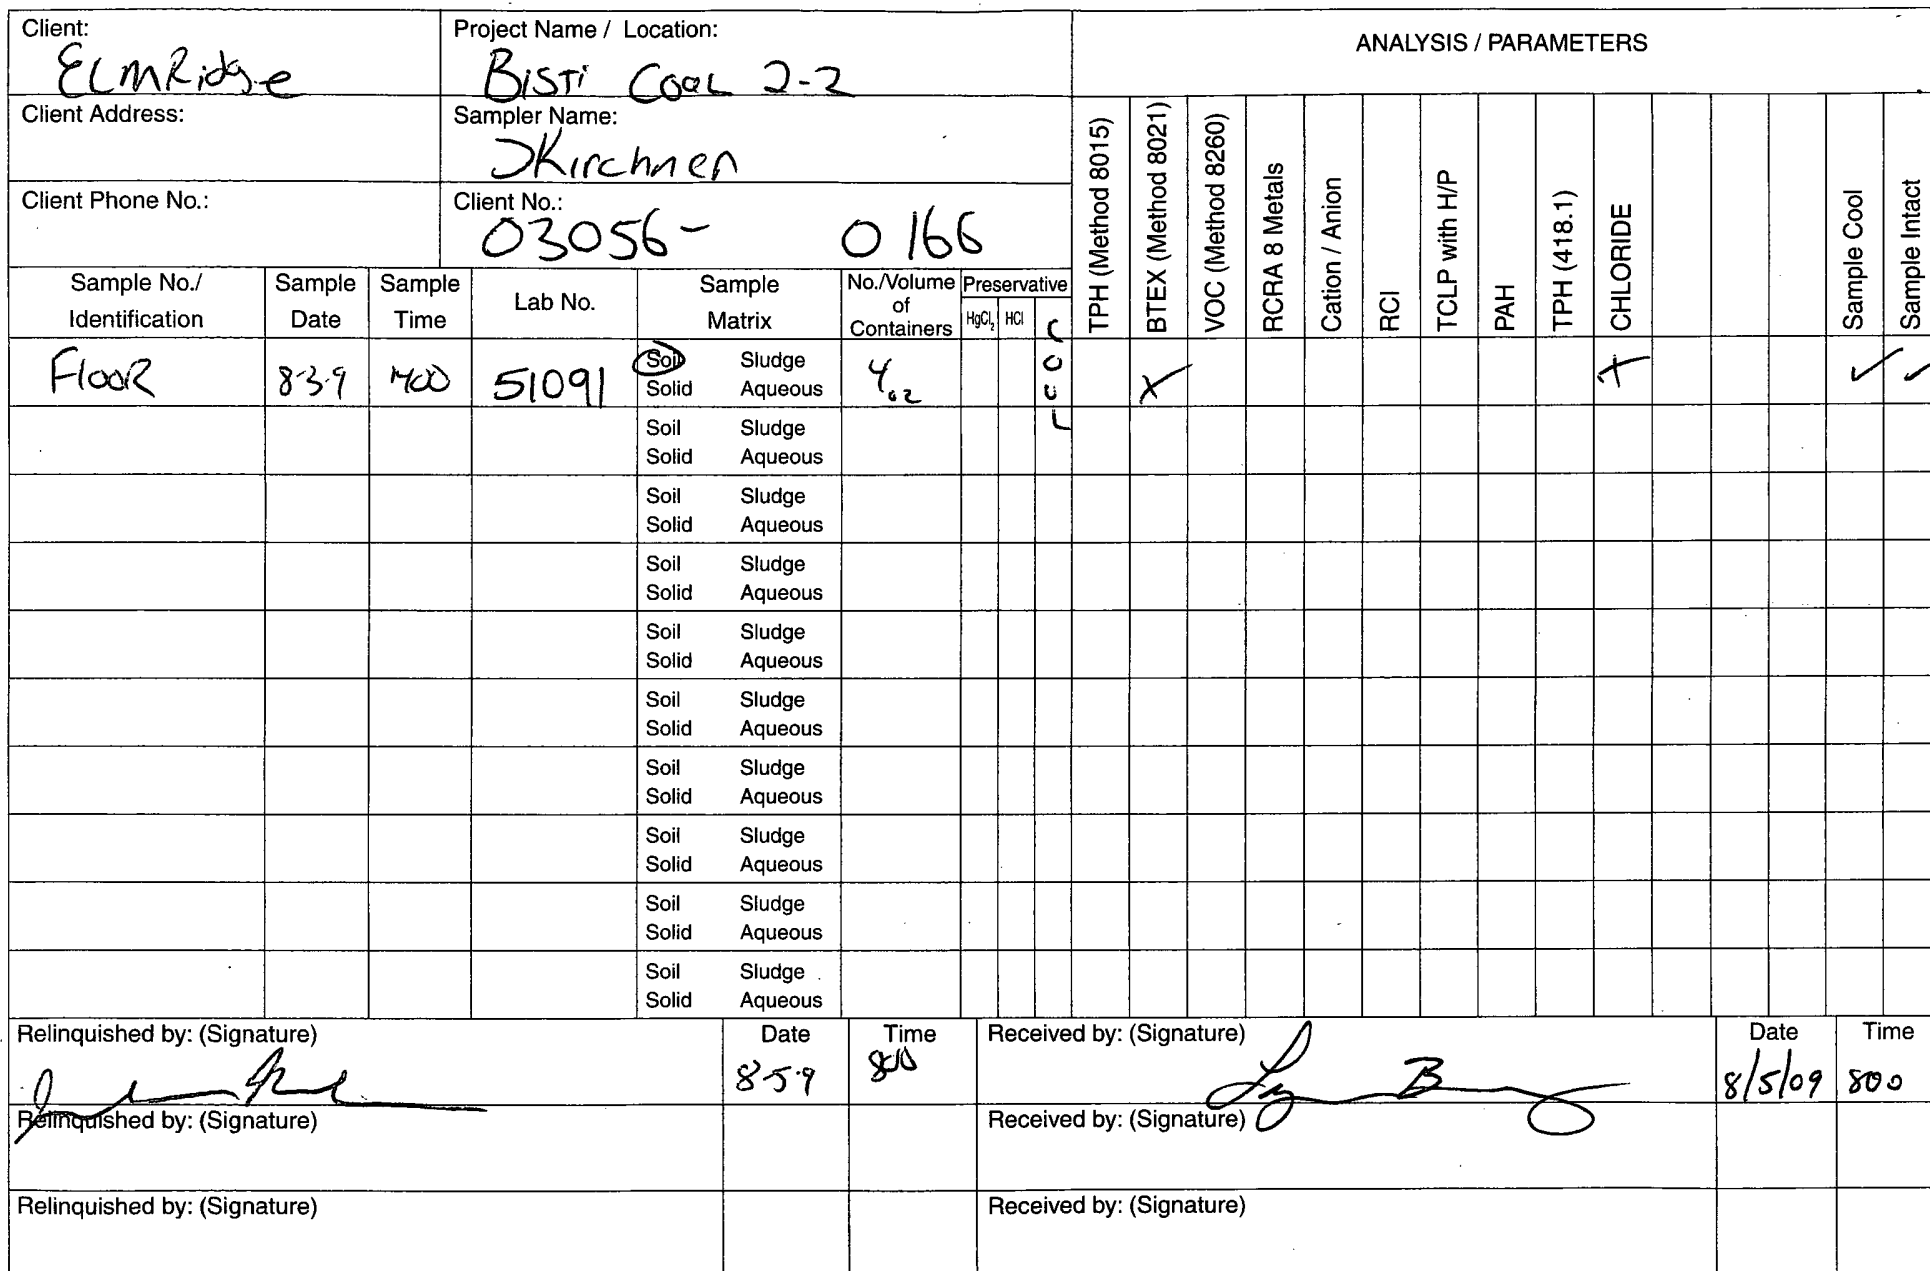 Client:
ELMRidge
Project Name / Location:
BISTI COAL 2-2
ANALYSIS / PARAMETERS
Client Address:
Sampler Name:
JKirchner
Client Phone No.:
Client No.:
03056- 0166
Sample No./ Identification
Sample Date
Sample Time
Lab No.
Sample Matrix
No./Volume of Containers
Preservative
HgCl₂ HCl COOL
TPH (Method 8015)
BTEX (Method 8021)
VOC (Method 8260)
RCRA 8 Metals
Cation / Anion
RCI
TCLP with H/P
PAH
TPH (418.1)
CHLORIDE
Sample Cool
Sample Intact
FLOOR 8-3-9 51091 Soil Sludge 4oz X X ✓ ✓
Solid Aqueous
Soil Sludge
Solid Aqueous
Soil Sludge
Solid Aqueous
Soil Sludge
Solid Aqueous
Soil Sludge
Solid Aqueous
Soil Sludge
Solid Aqueous
Soil Sludge
Solid Aqueous
Soil Sludge
Solid Aqueous
Soil Sludge
Solid Aqueous
Soil Sludge
Solid Aqueous
Relinquished by: (Signature) Date Time Received by: (Signature) Date Time
8-5-9 800 8/5/09 800
Relinquished by: (Signature) Received by: (Signature)
Relinquished by: (Signature) Received by: (Signature)